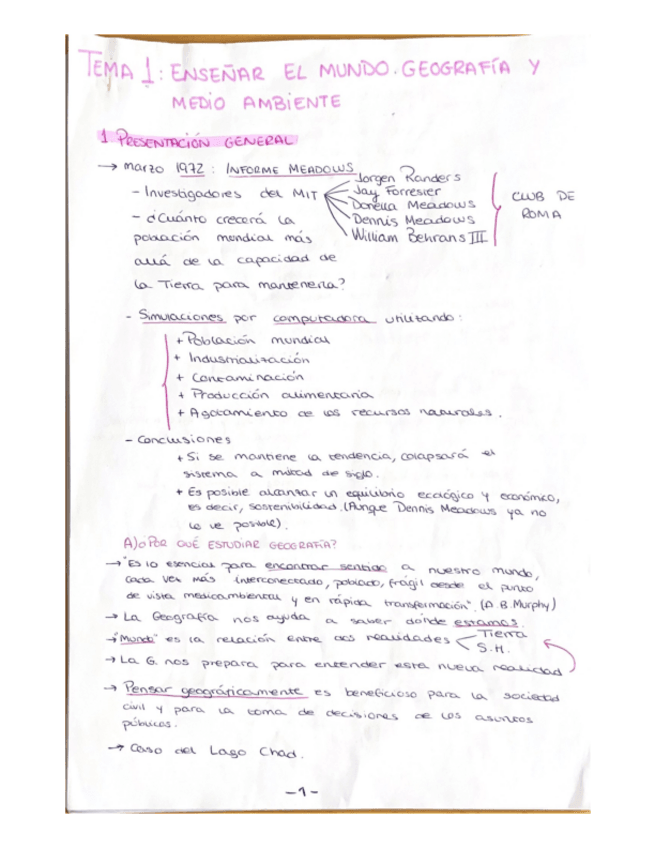 TEMA 1: ENSEÑAR EL MUNDO. GEOGRAFÍA Y
MEDIO AMBIENTE
1 PRESENTACIÓN GENERAL
→ marzo 1972: INFORME MEADOWS
- Investigadores del MIT
Jorgen Randers
Jay Forrester
Donella Meadows
Dennis Meadows
William Behrans III
CLUB DE
ROMA
- ¿Cuánto crecerá la
población mundial más
allá de la capacidad de
la Tierra para mantenerla?
- Simulaciones por computadora utilizando:
+ Población mundial
+ Industrialización
+ Contaminación
+ Producción alimentaria
+ Agotamiento de los recursos naturales.
- Conclusiones
+ Si se mantiene la tendencia, colapsará el
sistema a mitad de siglo.
+ Es posible alcanzar un equilibrio ecológico y económico,
es decir, sostenibilidad. (Aunque Dennis Meadows ya no
lo ve posible).
A) ¿POR QUÉ ESTUDIAR GEOGRAFÍA?
→ "Es lo esencial para encontrar sentido a nuestro mundo,
cada vez más interconectado, poblado, frágil desde el punto
de vista medioambiental y en rápida transformación". (A. B. Murphy)
→ La Geografía nos ayuda a saber dónde estamos.
→ "Mundo" es la relación entre dos realidades
Tierra
S.H.
→ La G. nos prepara para entender esta nueva realidad
→ Pensar geográficamente es beneficioso para la sociedad
civil y para la toma de decisiones de los asuntos
públicos.
→ Caso del Lago Chad.
-1-